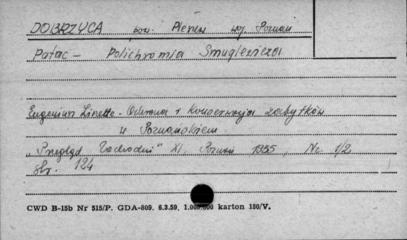 DOBRZYCA pow. Pleszew woj. Poznań
Pałac - Polichromia Smuglewicza
Eugeniusz Linette - Ochrona i konserwacja zabytków
w Poznańskiem
"Przegląd Zachodni" XI, Poznań 1955, Nr. 1/2
str. 124
CWD B-15b Nr 515/P. GDA-809. 6.3.59. 1.000.000 karton 180/V.